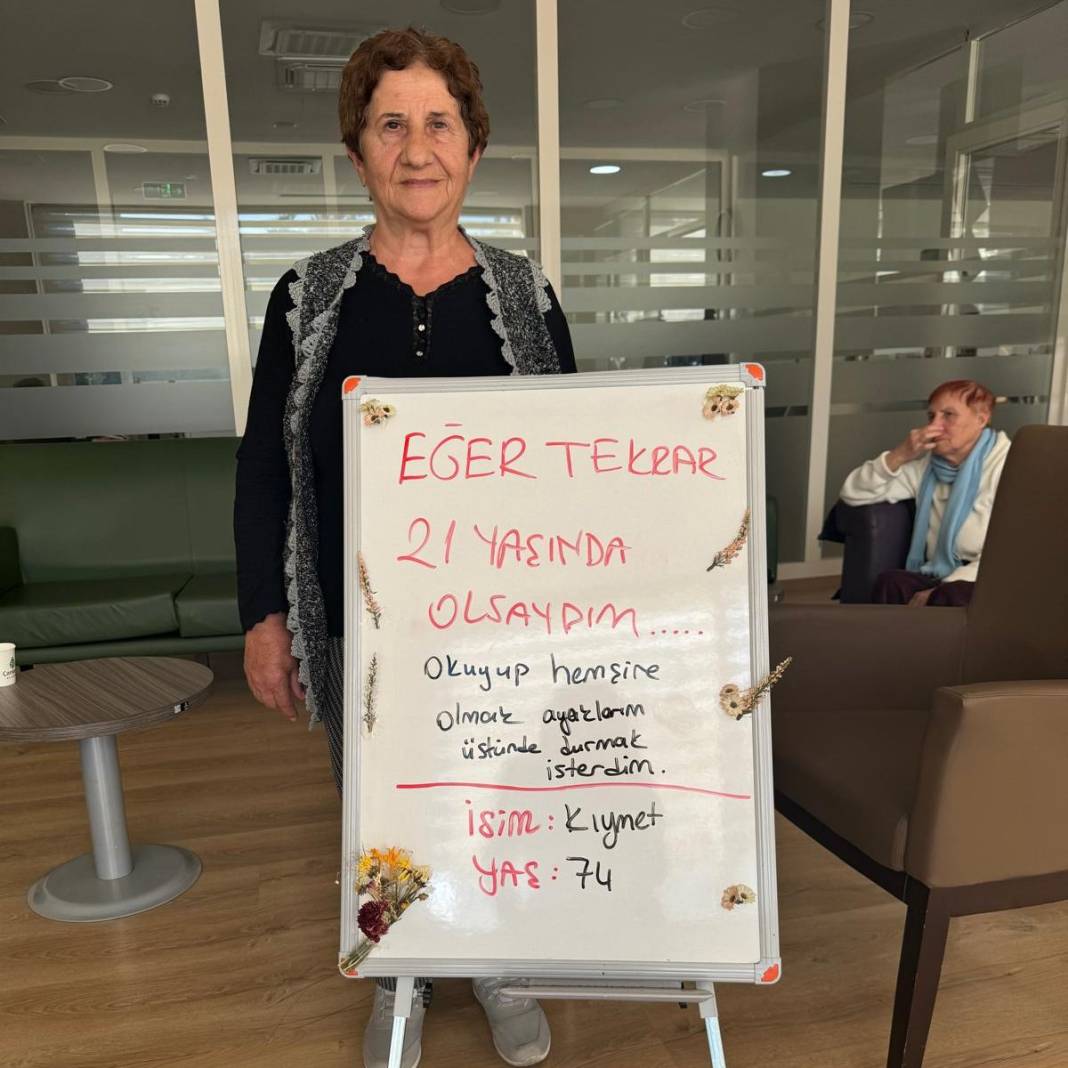 EĞER TEKRAR
21 YAŞINDA
OLSAYDIM.....
Okuyup hemşire
olmak ayaklarım
üstünde durmak
isterdim.
İSİM: Kıymet
YAŞ: 74